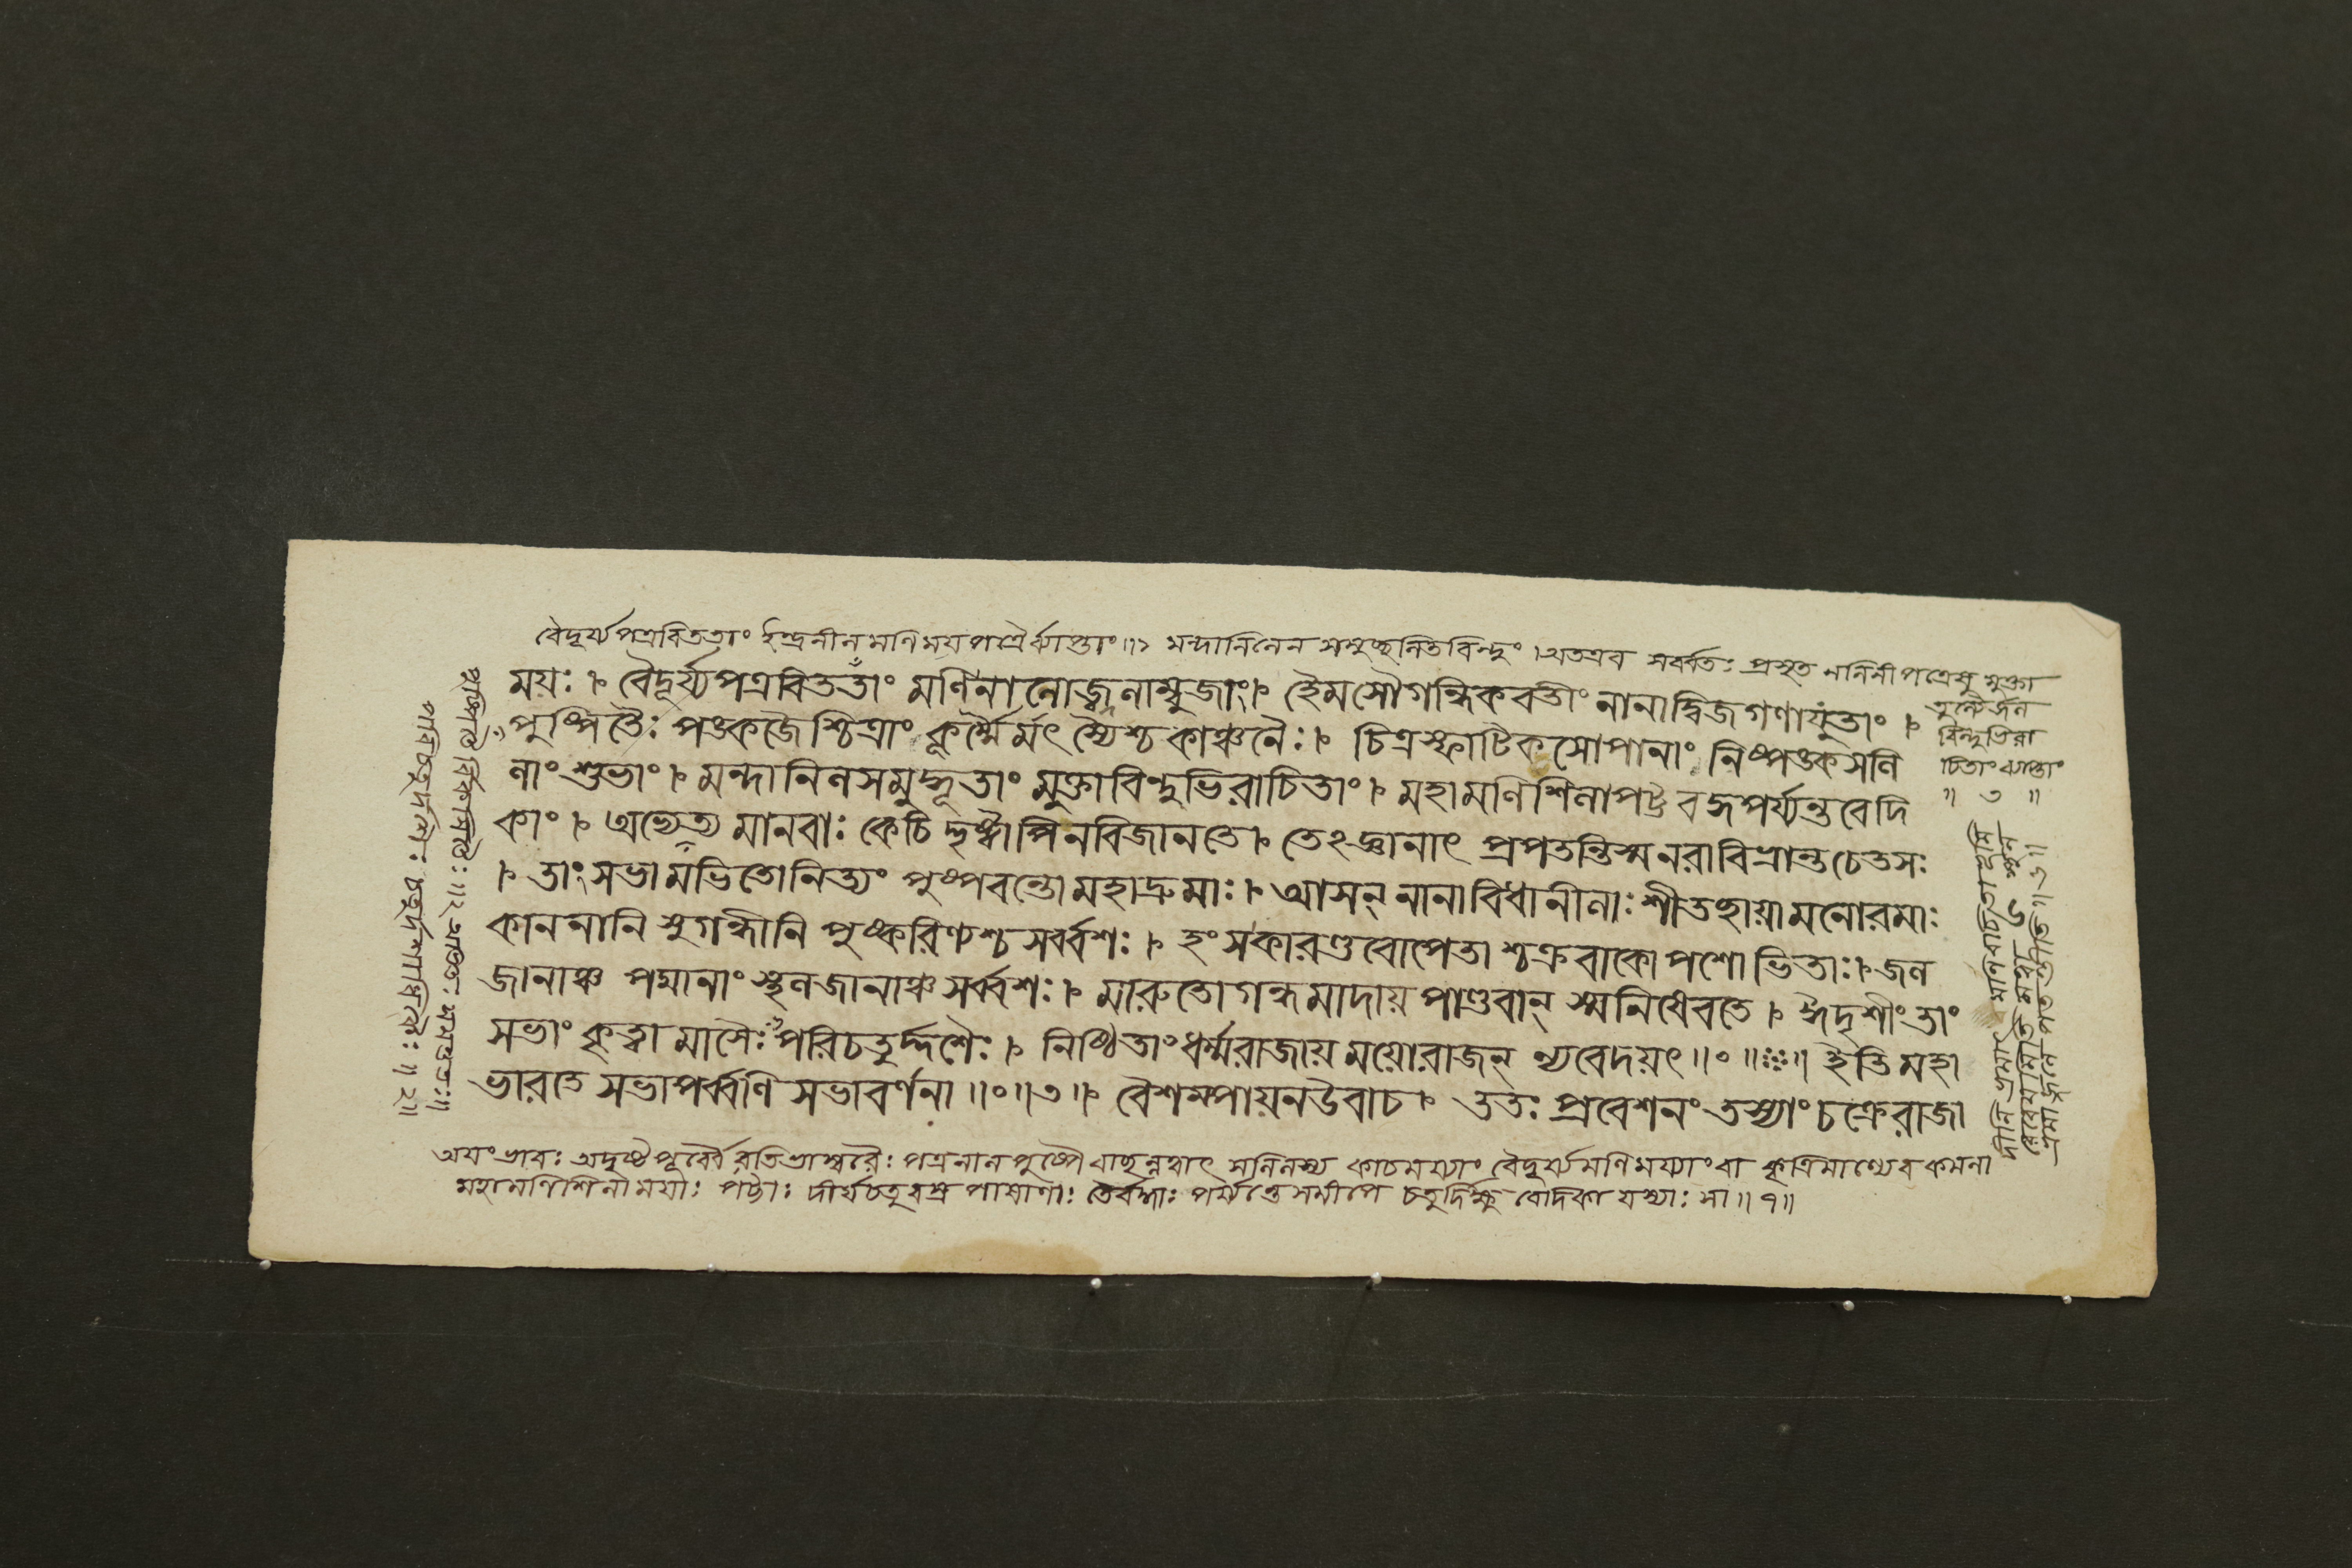 বৈদূর্য্যপত্রবিততাং ইন্দ্রনীলমণিময়পত্রৈর্ব্যাপ্তাং॥১ মন্দানিলেন সমুচ্ছলিতবিন্দুং।অতএব সর্ব্বতঃ প্রসৃত নলিনীপত্রেষু মুক্তা
তুল্যৈর্জল
বিন্দুভিরা
চিতাং ব্যাপ্তাং
॥ ৩ ॥
ময়ঃ। বৈদূর্য্যপত্রবিততাং মণিনালোজ্জ্বলাম্বুজাং। হৈমসৌগন্ধিকবতীং নানাদ্বিজগণাযুতাং।
পুষ্পিতৈঃ পঙ্কজৈশ্চিত্রাং কূর্ম্মৈর্মৎস্যৈশ্চ কাঞ্চনৈঃ। চিত্রস্ফাটিকসোপানাং নিষ্পঙ্কসলি
লাং শুভাং। মন্দানিলসমুদ্ধূতাং মুক্তাবিন্দুভিরাচিতাং। মহামণিশিলাপট্টবদ্ধপর্য্যন্তবেদি
কাং। অভ্যেত্য মানবাঃ কেচিদ্দৃষ্ট্বাপিনবিজানতে। তেঽজ্ঞানাৎ প্রপতন্তিস্মনরাবিভ্রান্তচেতসঃ
। তাং সভামভিতোনিত্যং পুষ্পবন্তোমহাদ্রুমাঃ। আসন্ নানাবিধানীলাঃ শীতচ্ছায়ামনোরমাঃ
কাননানি সুগন্ধীনি পুষ্করিণ্যশ্চ সর্ব্বশঃ। হংসকারণ্ডবোপেতাশ্চক্রবাকোপশোভিতাঃ। জল
জানাঞ্চ পদ্মানাং স্থলজানাঞ্চ সর্ব্বশঃ। মারুতোগন্ধমাদায় পাণ্ডবান্ স্মনিষেবতে। ঈদৃশীং তাং
সভাং কৃত্বা মাসৈঃ পরিচতুর্দ্দশৈঃ। নিষ্ঠিতাং ধর্ম্মরাজায় ময়োরাজন্ ন্যবেদয়ৎ॥০॥ ॥ ইতি মহা
ভারতে সভাপর্ব্বণি সভাবর্ণনা॥০॥৩॥ বৈশম্পায়নউবাচ। ততঃ প্রবেশনং তস্যাং চক্রেরাজা
অয়ং ভাবঃ অদৃষ্টপূর্ব্বৈরতিভাস্বরৈঃ পত্রনালপুষ্পৈ সলিলস্য কাচময্যাং বৈদূর্য্যমণিময্যাং বা
মহামণিশিলাময়াঃ পট্টাঃ দীর্ঘচতুরস্রপাষাণাঃ তৈর্বদ্ধাঃ পর্য্যন্তেসমীপে চতুর্দিক্ষু বেদিকা যস্যাঃ সা॥৭॥
পরিচতুর্দ্দশৈঃ ॥২॥